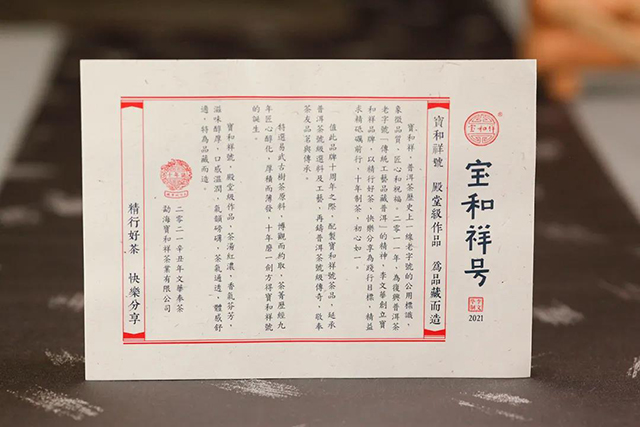 宝和祥号
2021
寶和祥號 殿堂級作品 為品藏而造
寶和祥，普洱茶歷史上一線老字號的公用標識，
象徵品質、匠心和祝福。二零一一年，為復興普洱茶
老字號「傳統工藝品藏普洱」的精神，李文華創立寶
和祥品牌，以精行好茶、快樂分享為踐行目標，精益
求精砥礪前行，十年制茶，初心如一。
值此品牌十周年之際，配製寶和祥號茶品，延承
普洱茶號級選料及工藝，再鑄普洱茶號級傳奇，敬奉
茶友品茗與傳承。
特選易武古樹茶原料，博觀而約取，茶菁歷經九
年匠心醇化，厚積而薄發，十年磨一劍方得寶和祥號
的誕生。
寶和祥號，殿堂級作品，茶湯紅濃，香氣芬芳，
滋味醇厚，口感溫潤，氣韻磅礴，茶氣通透，體感舒
適，特為品藏而造。
二零二一辛丑年文華奉茶
勐海寶和祥茶業有限公司
精行好茶 快樂分享